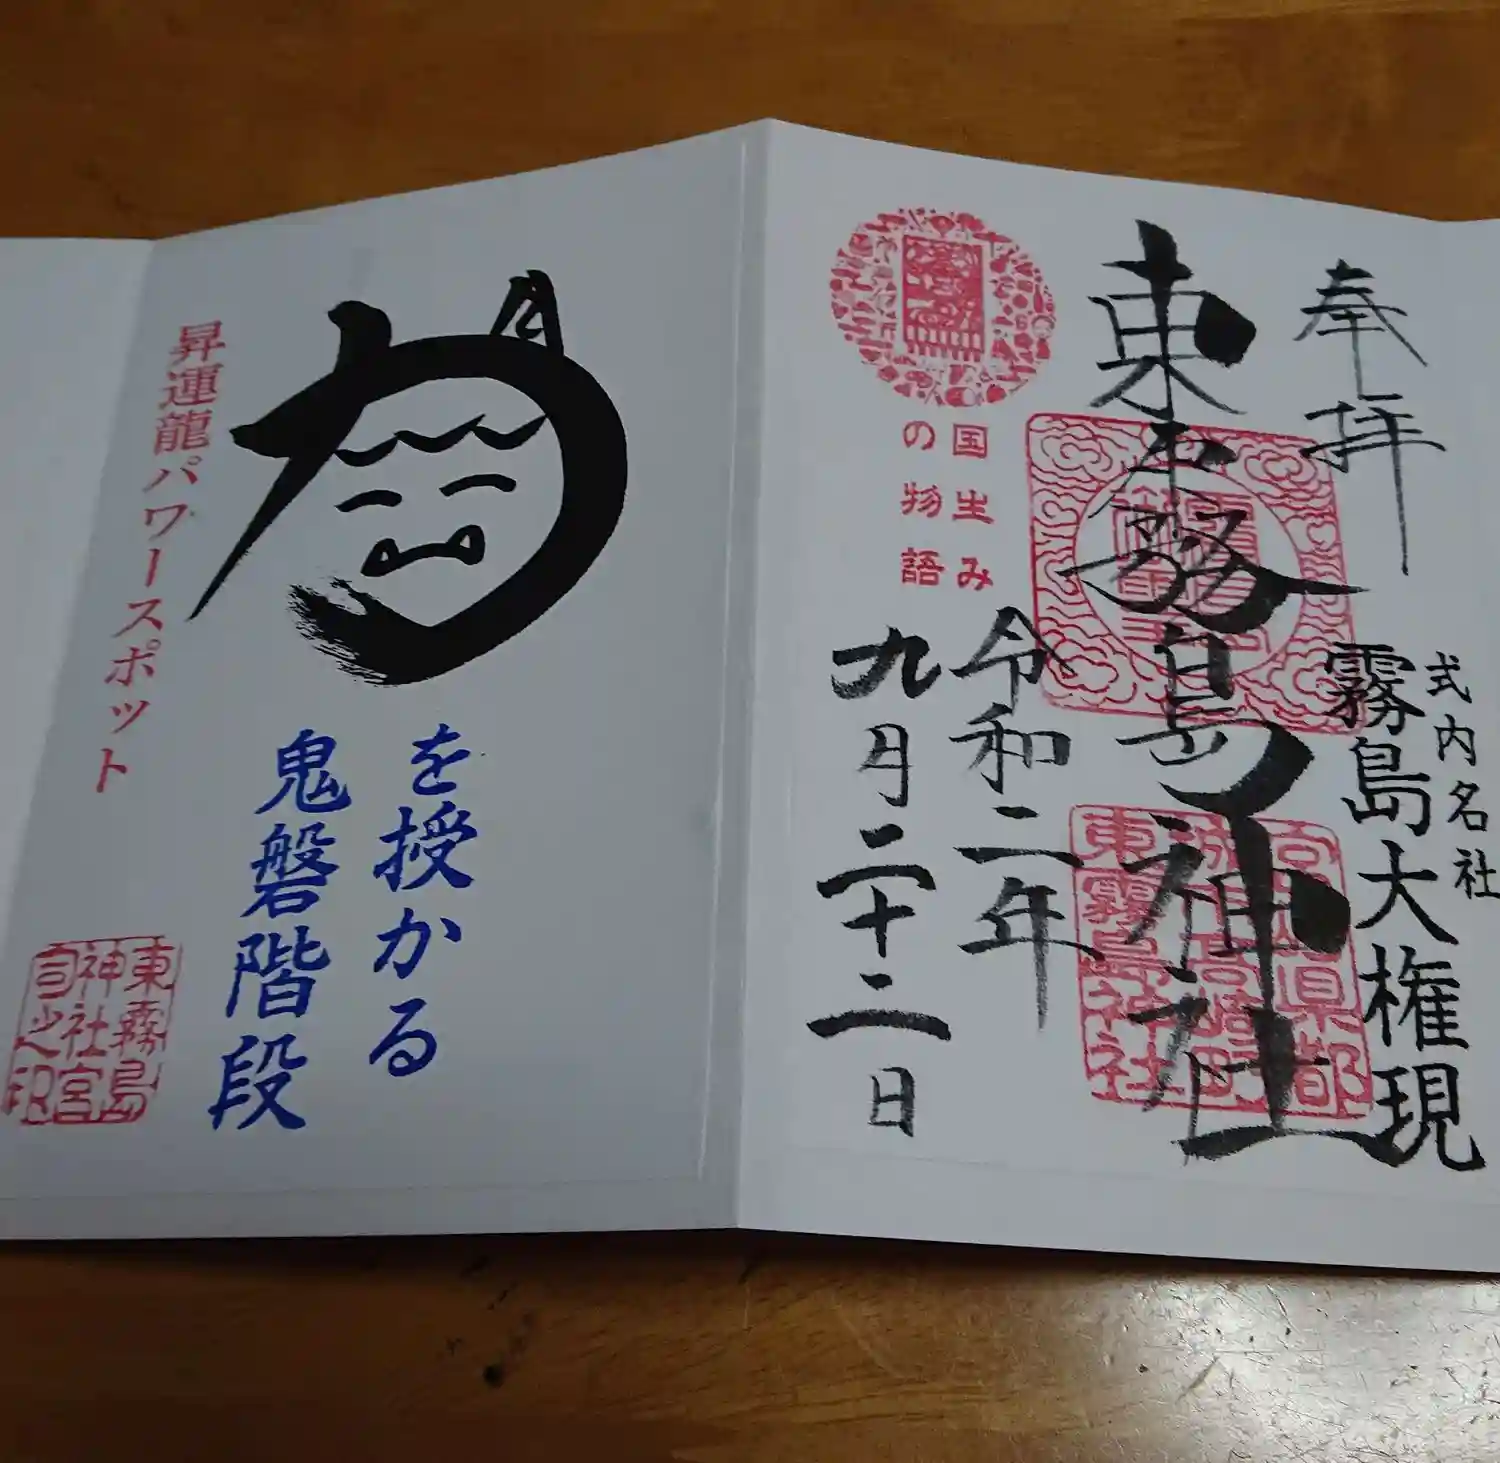 奉拝
式内名社
霧島大権現
東霧島神社
宮崎県都
城市高崎町
東霧島神社
国生み
の物語
令和二年
九月二十二日
力
を授かる
鬼磐階段
昇運龍パワースポット
東霧島
神社宮
司之印